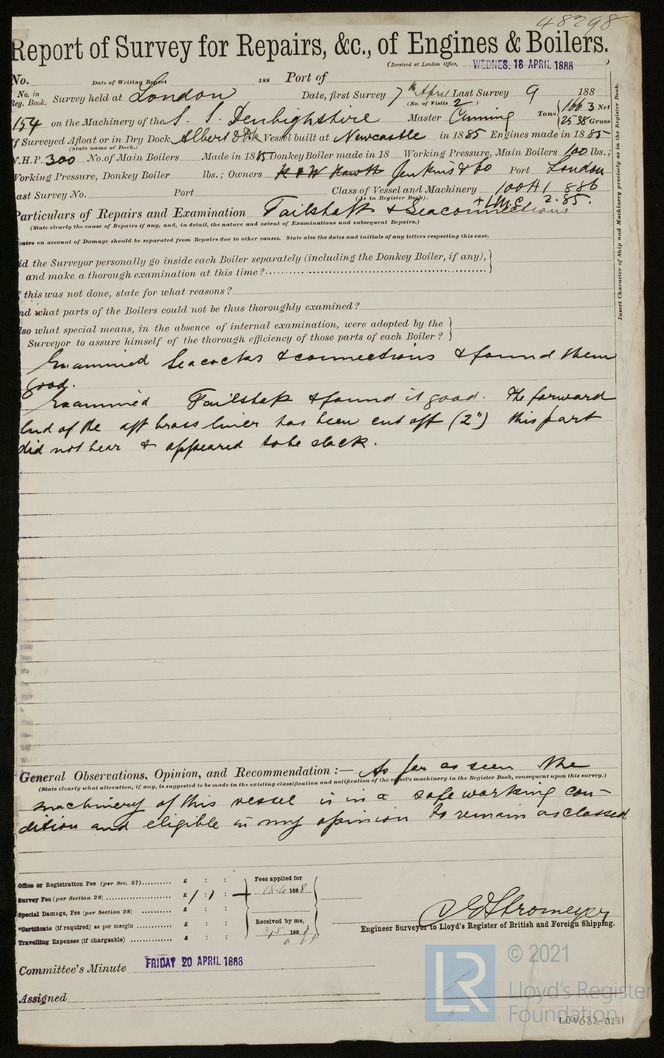 48298
Report of Survey for Repairs, &c., of Engines & Boilers.
(Received at London Office, WEDNES. 18 APRIL 1888
No. Date of Writing Report 188 Port of
No. in Reg. Book. Survey held at London Date, first Survey 7th April Last Survey 9 188
(No. of Visits 2)
154 on the Machinery of the S. S. Denbighshire Master Cuming Tons 1663 Net 2538 Gross
If Surveyed Afloat or in Dry Dock Albert D Dk Vessel built at Newcastle in 1885 Engines made in 1885
(State name of Dock.)
N.H.P. 300 No. of Main Boilers Made in 1885 Donkey Boiler made in 18 Working Pressure, Main Boilers 100 lbs.;
Working Pressure, Donkey Boiler lbs.; Owners Jenkins & Co Port London
Last Survey No. Port Class of Vessel and Machinery 100A1 886
(As in Register Book.) + LMC 2.85.
Particulars of Repairs and Examination Tailshaft & Seaconnections
(State clearly the cause of Repairs if any, and, in detail, the nature and extent of Examinations and subsequent Repairs.)
Repairs on account of Damage should be separated from Repairs due to other causes. State also the dates and initials of any letters respecting this case.
Did the Surveyor personally go inside each Boiler separately (including the Donkey Boiler, if any),
and make a thorough examination at this time?
If this was not done, state for what reasons?
And what parts of the Boilers could not be thus thoroughly examined?
Also what special means, in the absence of internal examination, were adopted by the
Surveyor to assure himself of the thorough efficiency of those parts of each Boiler?
Examined Seacocks & connections & found them
good.
Examined Tailshaft & found it good. The forward
end of the aft brass liner has been cut off (2") this part
did not bear & appeared to be slack.
General Observations, Opinion, and Recommendation :— As far as seen the
(State clearly what alteration, if any, is suggested to be made in the existing classification and notification of the vessel's machinery in the Register Book, consequent upon this survey.)
machinery of this vessel is in a safe working con-
dition and eligible in my opinion to remain as classed
Office or Registration Fee (per Sec. 27) £ : :
Survey Fee (per Section 28) £ 1 : 1 :
Special Damage, Fee (per Section 28) £ : :
*Certificate (if required) as per margin £ : :
Travelling Expenses (if chargeable) £ : :
Fees applied for
18.4.1888
Received by me,
3/5 1888
Insert Character of Ship and Machinery precisely as in the Register Book.
Engineer Surveyor to Lloyd's Register of British and Foreign Shipping.
Committee's Minute FRIDAY 20 APRIL 1888
Assigned
LR
© 2021
Lloyd's Register
Foundation